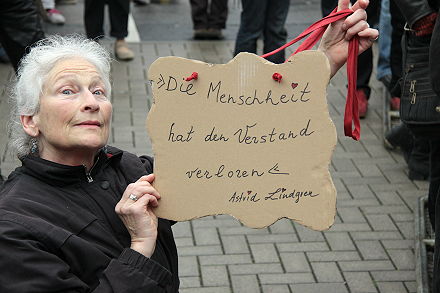 »Die Menschheit
hat den Verstand
verloren«
Astrid Lindgren